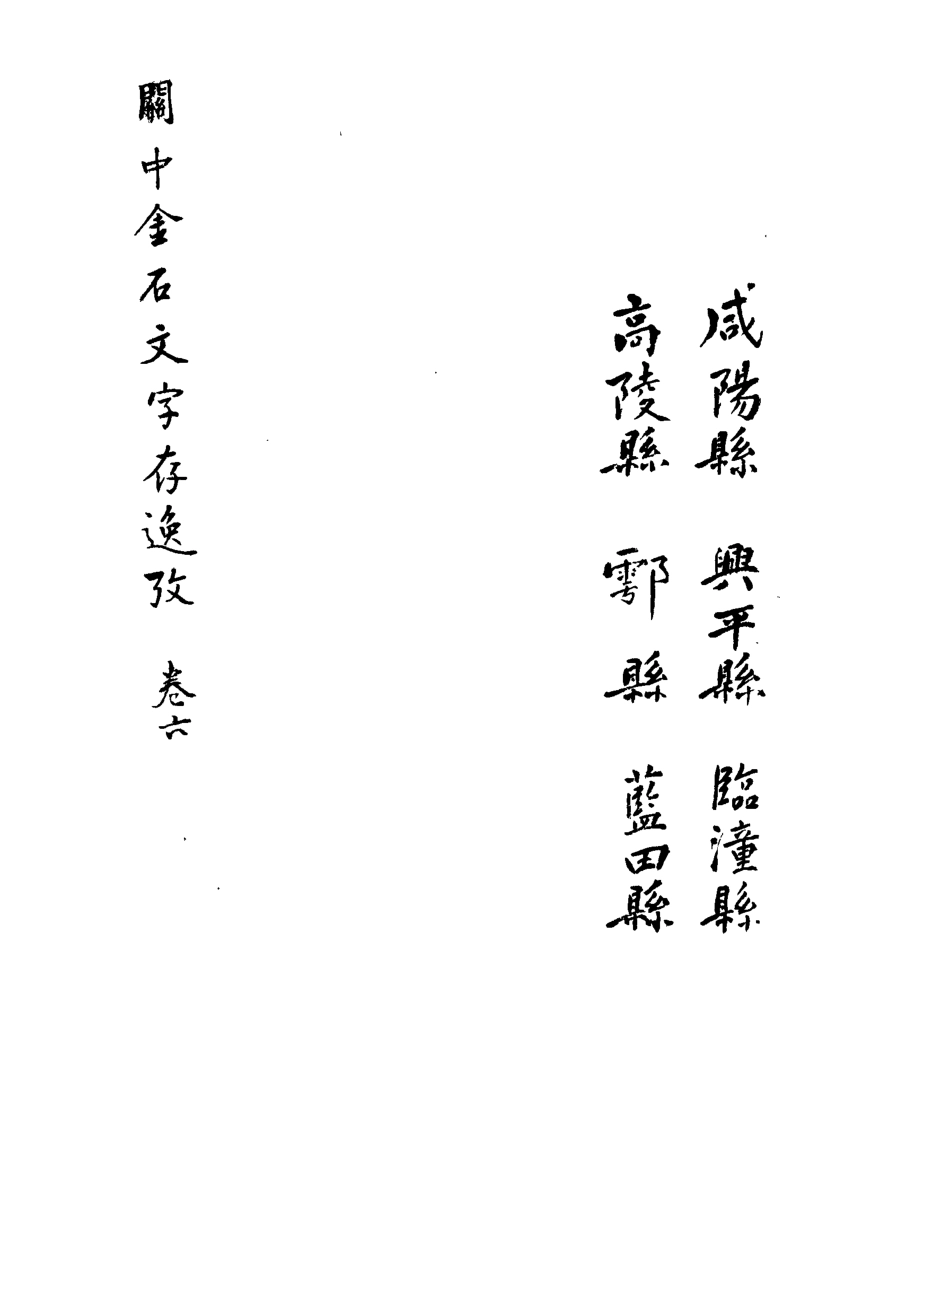 咸陽縣　興平縣　臨潼縣
高陵縣　鄠縣　藍田縣
關中金石文字存逸攷　卷六